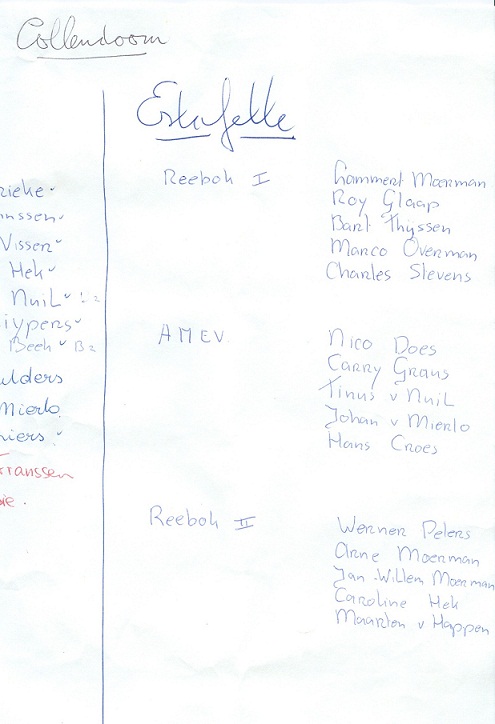 Collendoorn
Estafette
rieke
nssen
Vissen
Hek
Nuil 1 2
ypers
Beek B2
ulders
Mierlo
niers
Franssen
ie.
Reebok I
Lammert Moerman
Roy Glaap
Bart Thijssen
Marco Overman
Charles Stevens
AMEV
Nico Does
Carry Graus
Tinus v Nuil
Johan v Mierlo
Hans Croes
Reebok II
Werner Peters
Arne Moerman
Jan-Willem Moerman
Caroline Hek
Maarten v Happen